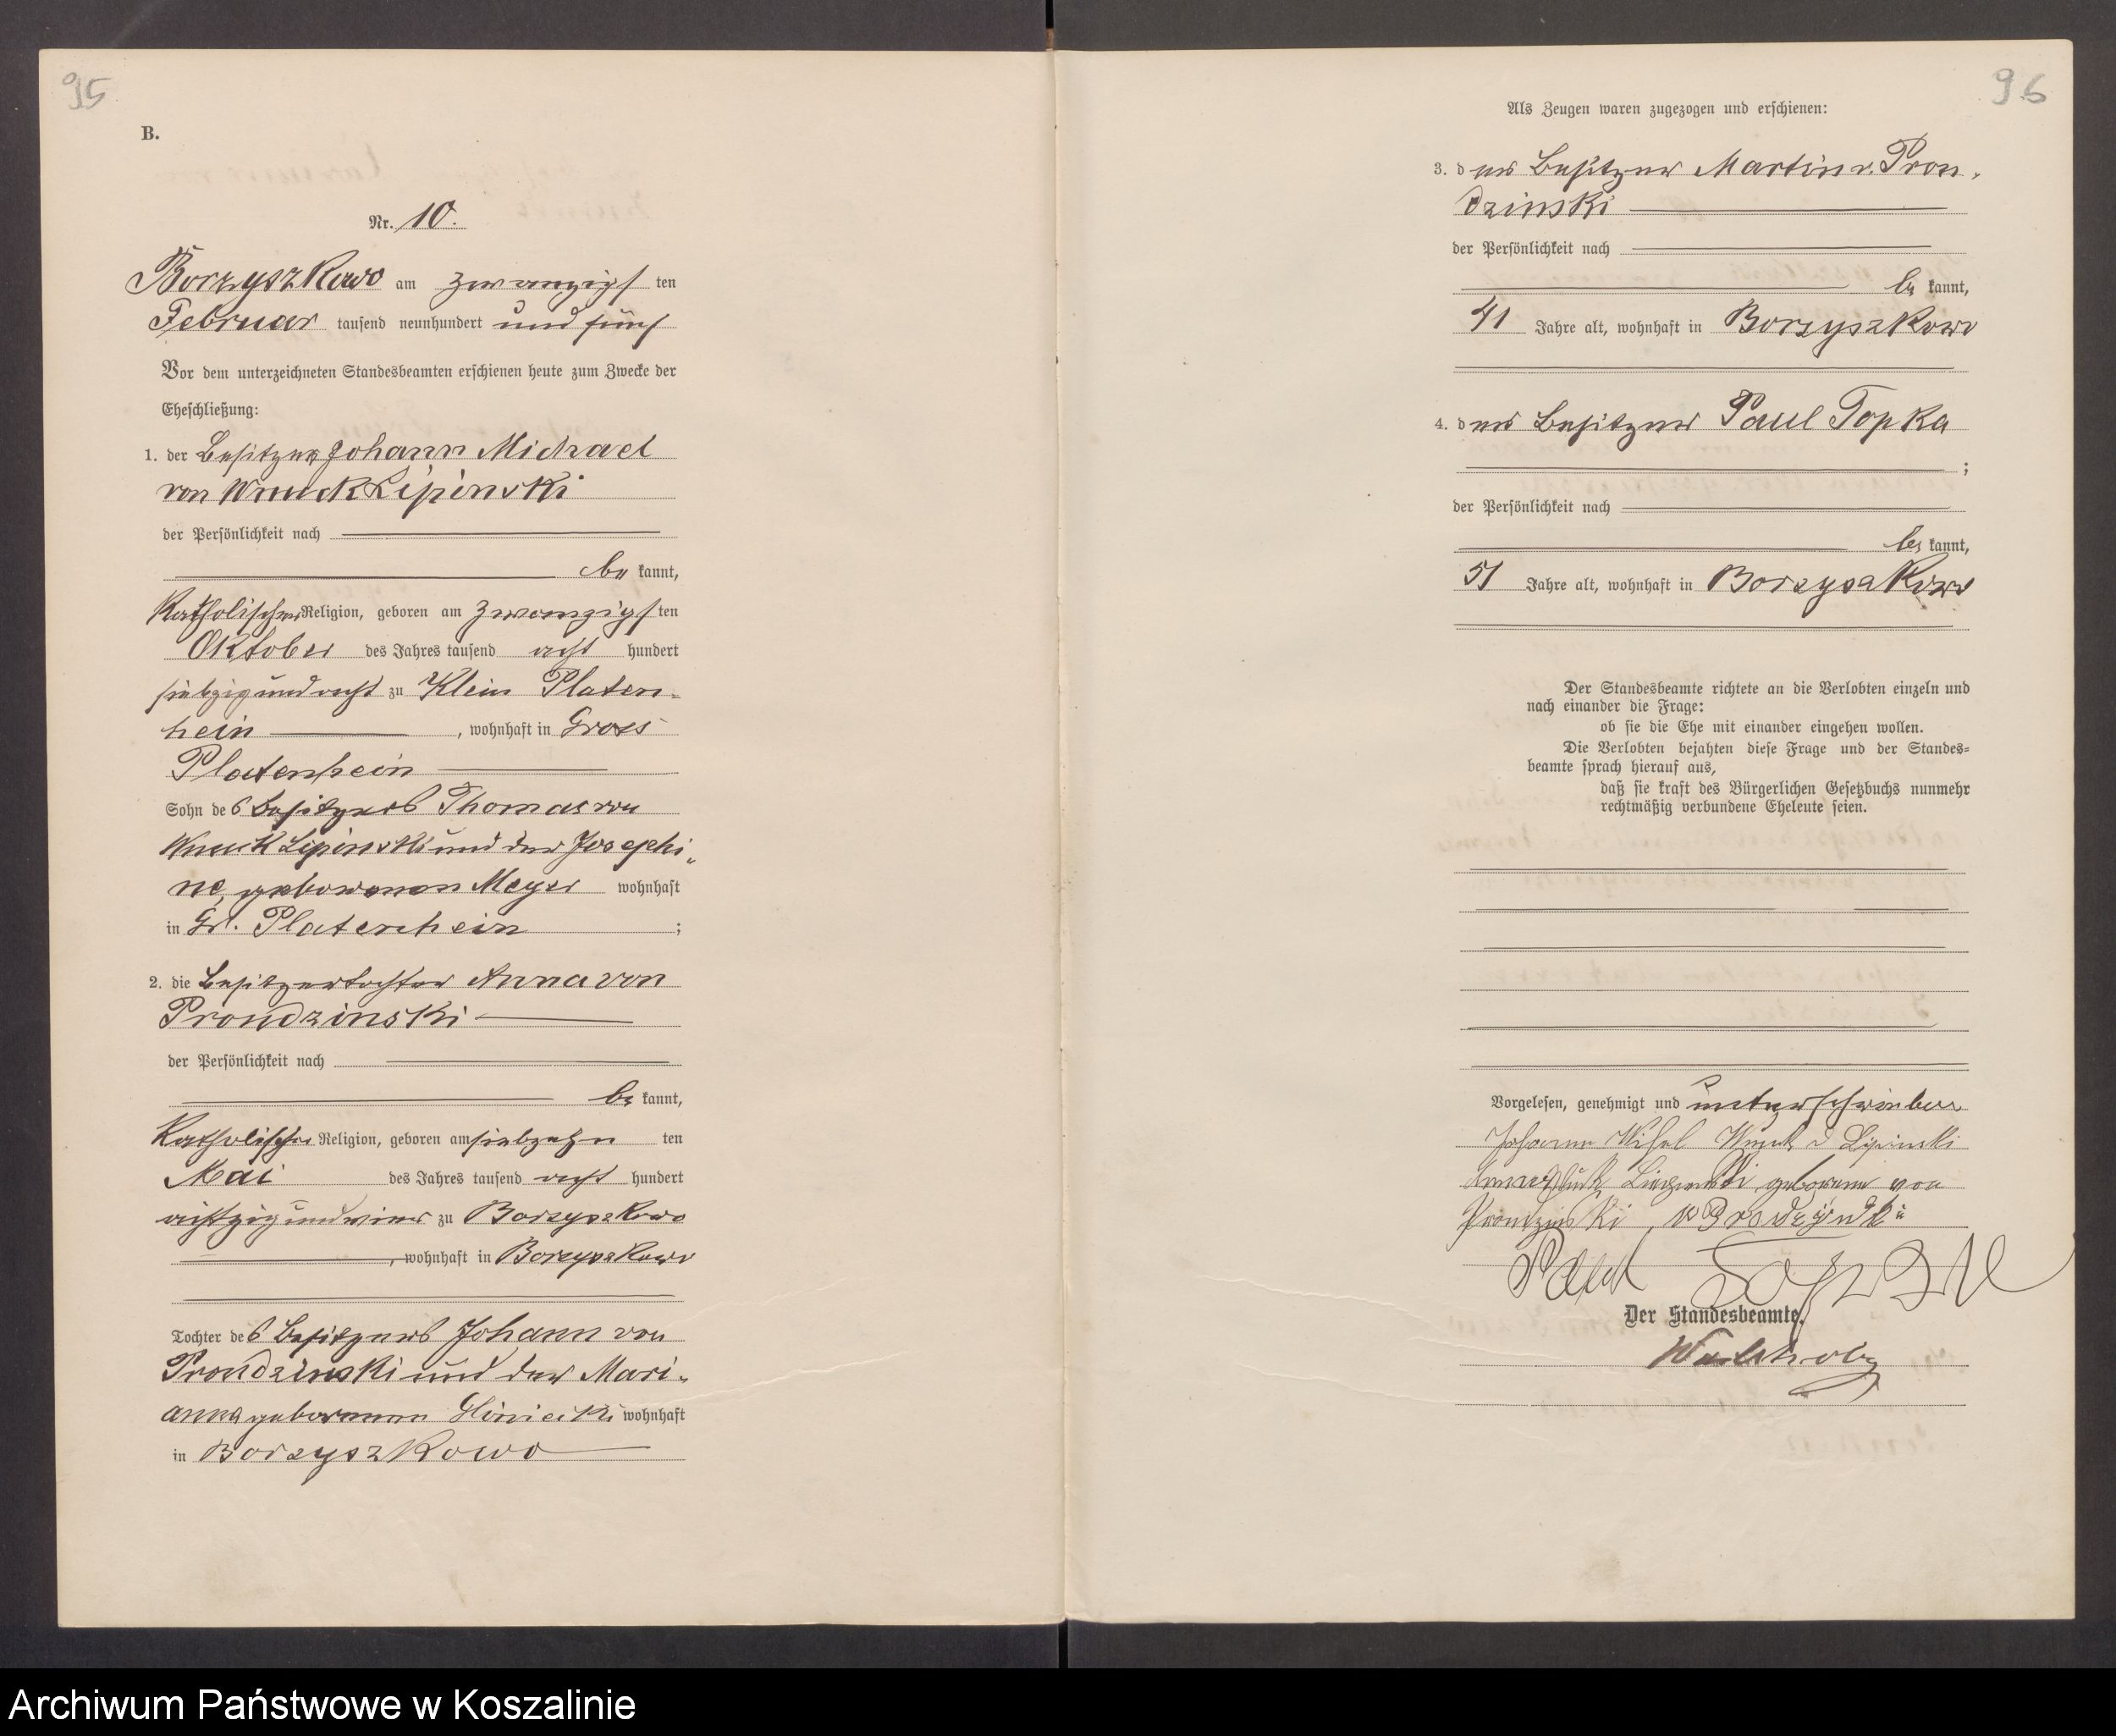 95
B.
Nr. 10.
Borzyszkowo am zwanzigsten
Februar tausend neunhundert und fünf
Vor dem unterzeichneten Standesbeamten erschienen heute zum Zwecke der
Eheschließung:
1. der Besitzer Johann Michael
von Wnuck Lipinski
der Persönlichkeit nach
bekannt,
Katholischer Religion, geboren am zwanzigsten
Oktober des Jahres tausend acht hundert
siebzig und acht zu Klein Platen-
hein, wohnhaft in Gross
Platenhein
Sohn des Besitzers Thomas von
Wnuck Lipinski und der Josephi-
ne, geborenen Meyer wohnhaft
in Gr. Platenhein;
2. die Besitzertochter Anna von
Prondzinski
der Persönlichkeit nach
bekannt,
Katholischer Religion, geboren am siebzehnten
Mai des Jahres tausend acht hundert
achtzig und vier zu Borzyszkowo
, wohnhaft in Borzyszkowo
Tochter des Besitzers Johann von
Prondzinski und der Mari-
anna geborenen wohnhaft
in Borzyszkowo
96
Als Zeugen waren zugezogen und erschienen:
3. der Besitzer Martin v. Pron-
dzinski
der Persönlichkeit nach
bekannt,
41 Jahre alt, wohnhaft in Borzyszkowo
4. der Besitzer Paul Topka
;
der Persönlichkeit nach
bekannt,
51 Jahre alt, wohnhaft in Borzyszkowo
Der Standesbeamte richtete an die Verlobten einzeln und
nach einander die Frage:
ob sie die Ehe mit einander eingehen wollen.
Die Verlobten bejahten diese Frage und der Standes=
beamte sprach hierauf aus,
daß sie kraft des Bürgerlichen Gesetzbuchs nunmehr
rechtmäßig verbundene Eheleute seien.
Vorgelesen, genehmigt und unterschrieben
Johann Wnuck v Lipinski
Anna geborene von
Prondzinski
Paul
Der Standesbeamte.
Archiwum Państwowe w Koszalinie